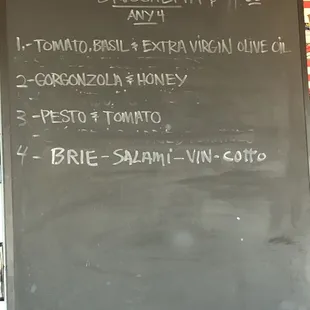 ANY 4
1.-TOMATO, BASIL & EXTRA VIRGIN OLIVE OIL
2-GORGONZOLA & HONEY
3-PESTO & TOMATO
4- BRIE-SALAMI-VIN-COTTO